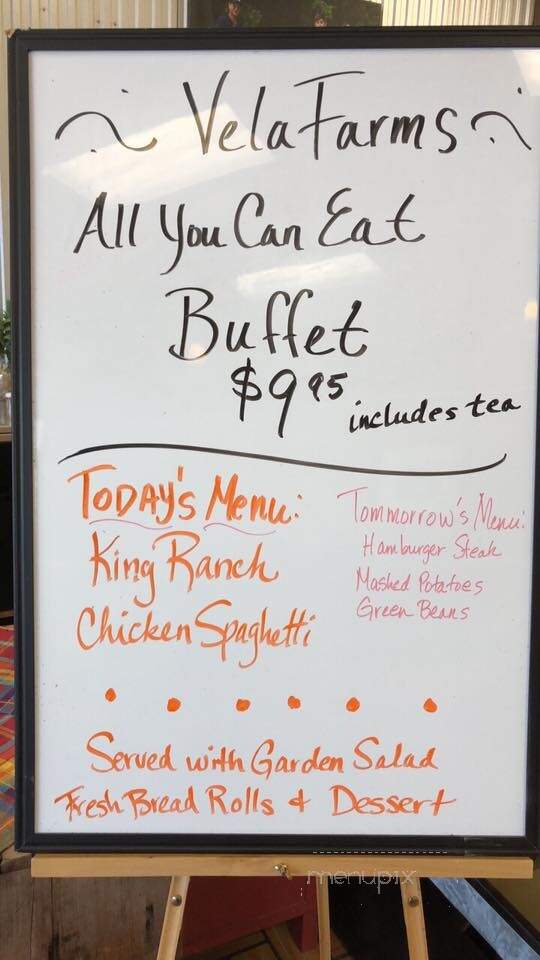 Vela Farms
All You Can Eat
Buffet
$9.95
includes tea
Today's Menu:
King Ranch
Chicken Spaghetti
Tommorrow's Menu:
Hamburger Steak
Mashed Potatoes
Green Beans
Served with Garden Salad
Fresh Bread Rolls & Dessert
menupix